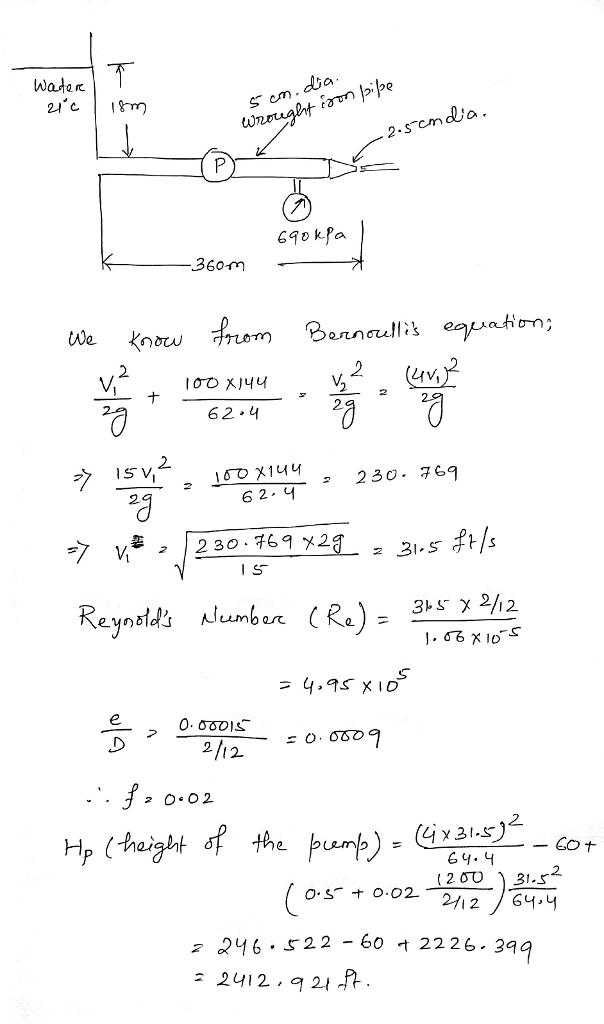 Water
21°c
18m
5 cm. dia.
wrought iron pipe
2.5cmdia.
P
690kPa
360m
We know from Bernoulli's equation;
V₁²/2g + 100 X144/62.4 = V₂²/2g = (4V₁)²/2g
=> 15V₁²/2g = 100 X144/62.4 = 230.769
=> V₁ = √(230.769 x2g/15) = 31.5 ft/s
Reynold's Number (Re) = 31.5 x 2/12 / 1.06 x 10⁻⁵
= 4.95 x 10⁵
e/D = 0.00015/2/12 = 0.0009
∴ f = 0.02
Hp (height of the pump) = (4x31.5)²/64.4 - 60+
(0.5 + 0.02 1200/2/12) 31.5²/64.4
= 246.522 - 60 + 2226.399
= 2412.921 ft.